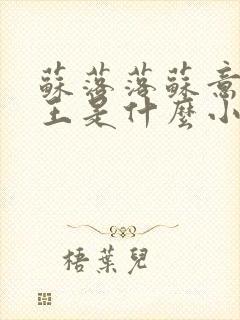 蘇落落蘇意
主是什麼小
梧葉兒